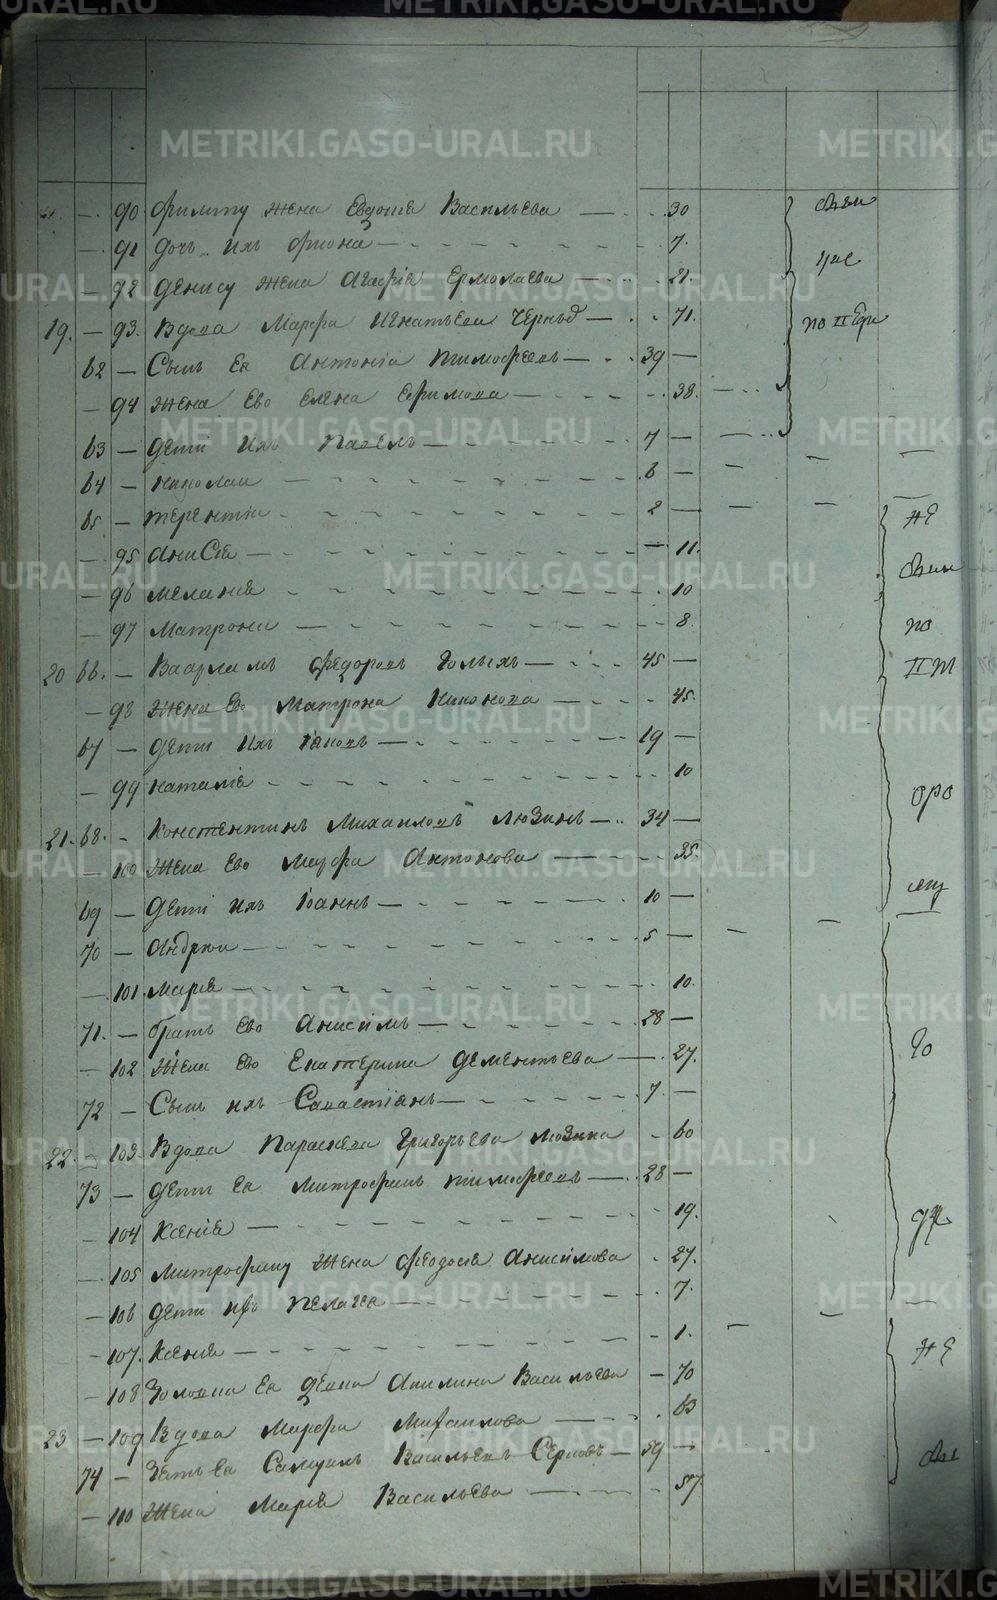 90 Филипу жена Евдокия Васильева 30
91 дочь ихъ Фиона 7.
92 Денису жена Агафия Ермолаева 21.
19. 93. Вдова Марфа Игнатьева 71.
62 Сынъ Ея Антоніа Тимофеевъ 39
94 жена Ево Елена Ефимова 38.
63 дети ихъ Павелъ 7
64 николаи 6
65 терентіи 2
95 аниСія 11.
96 меланія 10
97 Матрона 8.
20 66. Ваарламъ Федоровъ Голыхъ 45
98 жена Ево Матрона Никонова 45.
67 дети ихъ Іаковъ 19
99 наталія 10
21. 68. Констентинъ Михаиловъ Люзинъ 34
100 жена Ево Марфа Антонова 35.
69 дети ихъ Іоаннъ 10
70 Андреи 5
101. марія 10.
71. братъ Ево Анисимъ 28
102 жена Ево Екатерина Дементьева 27.
72 Сынъ ихъ Савастіанъ 7.
22. 103. Вдова Параскева Григорьева Люзина 60
73 дети Ея Митрофанъ тимофеевъ 28
104 Ксенія 19.
105 Митрофану жена Феодосія Анисимова 27.
106 дети ихъ пелагея 7.
107. Ксенія 1.
108 Золовка Ея девка Акилина Васильева 70
23 109 Вдова Марфа Михаилова 63
74 Зять Ея Самуилъ Васильевъ Серковъ 59
110 жена Марія Васильева 57
METRIKI.GASO-URAL.RU